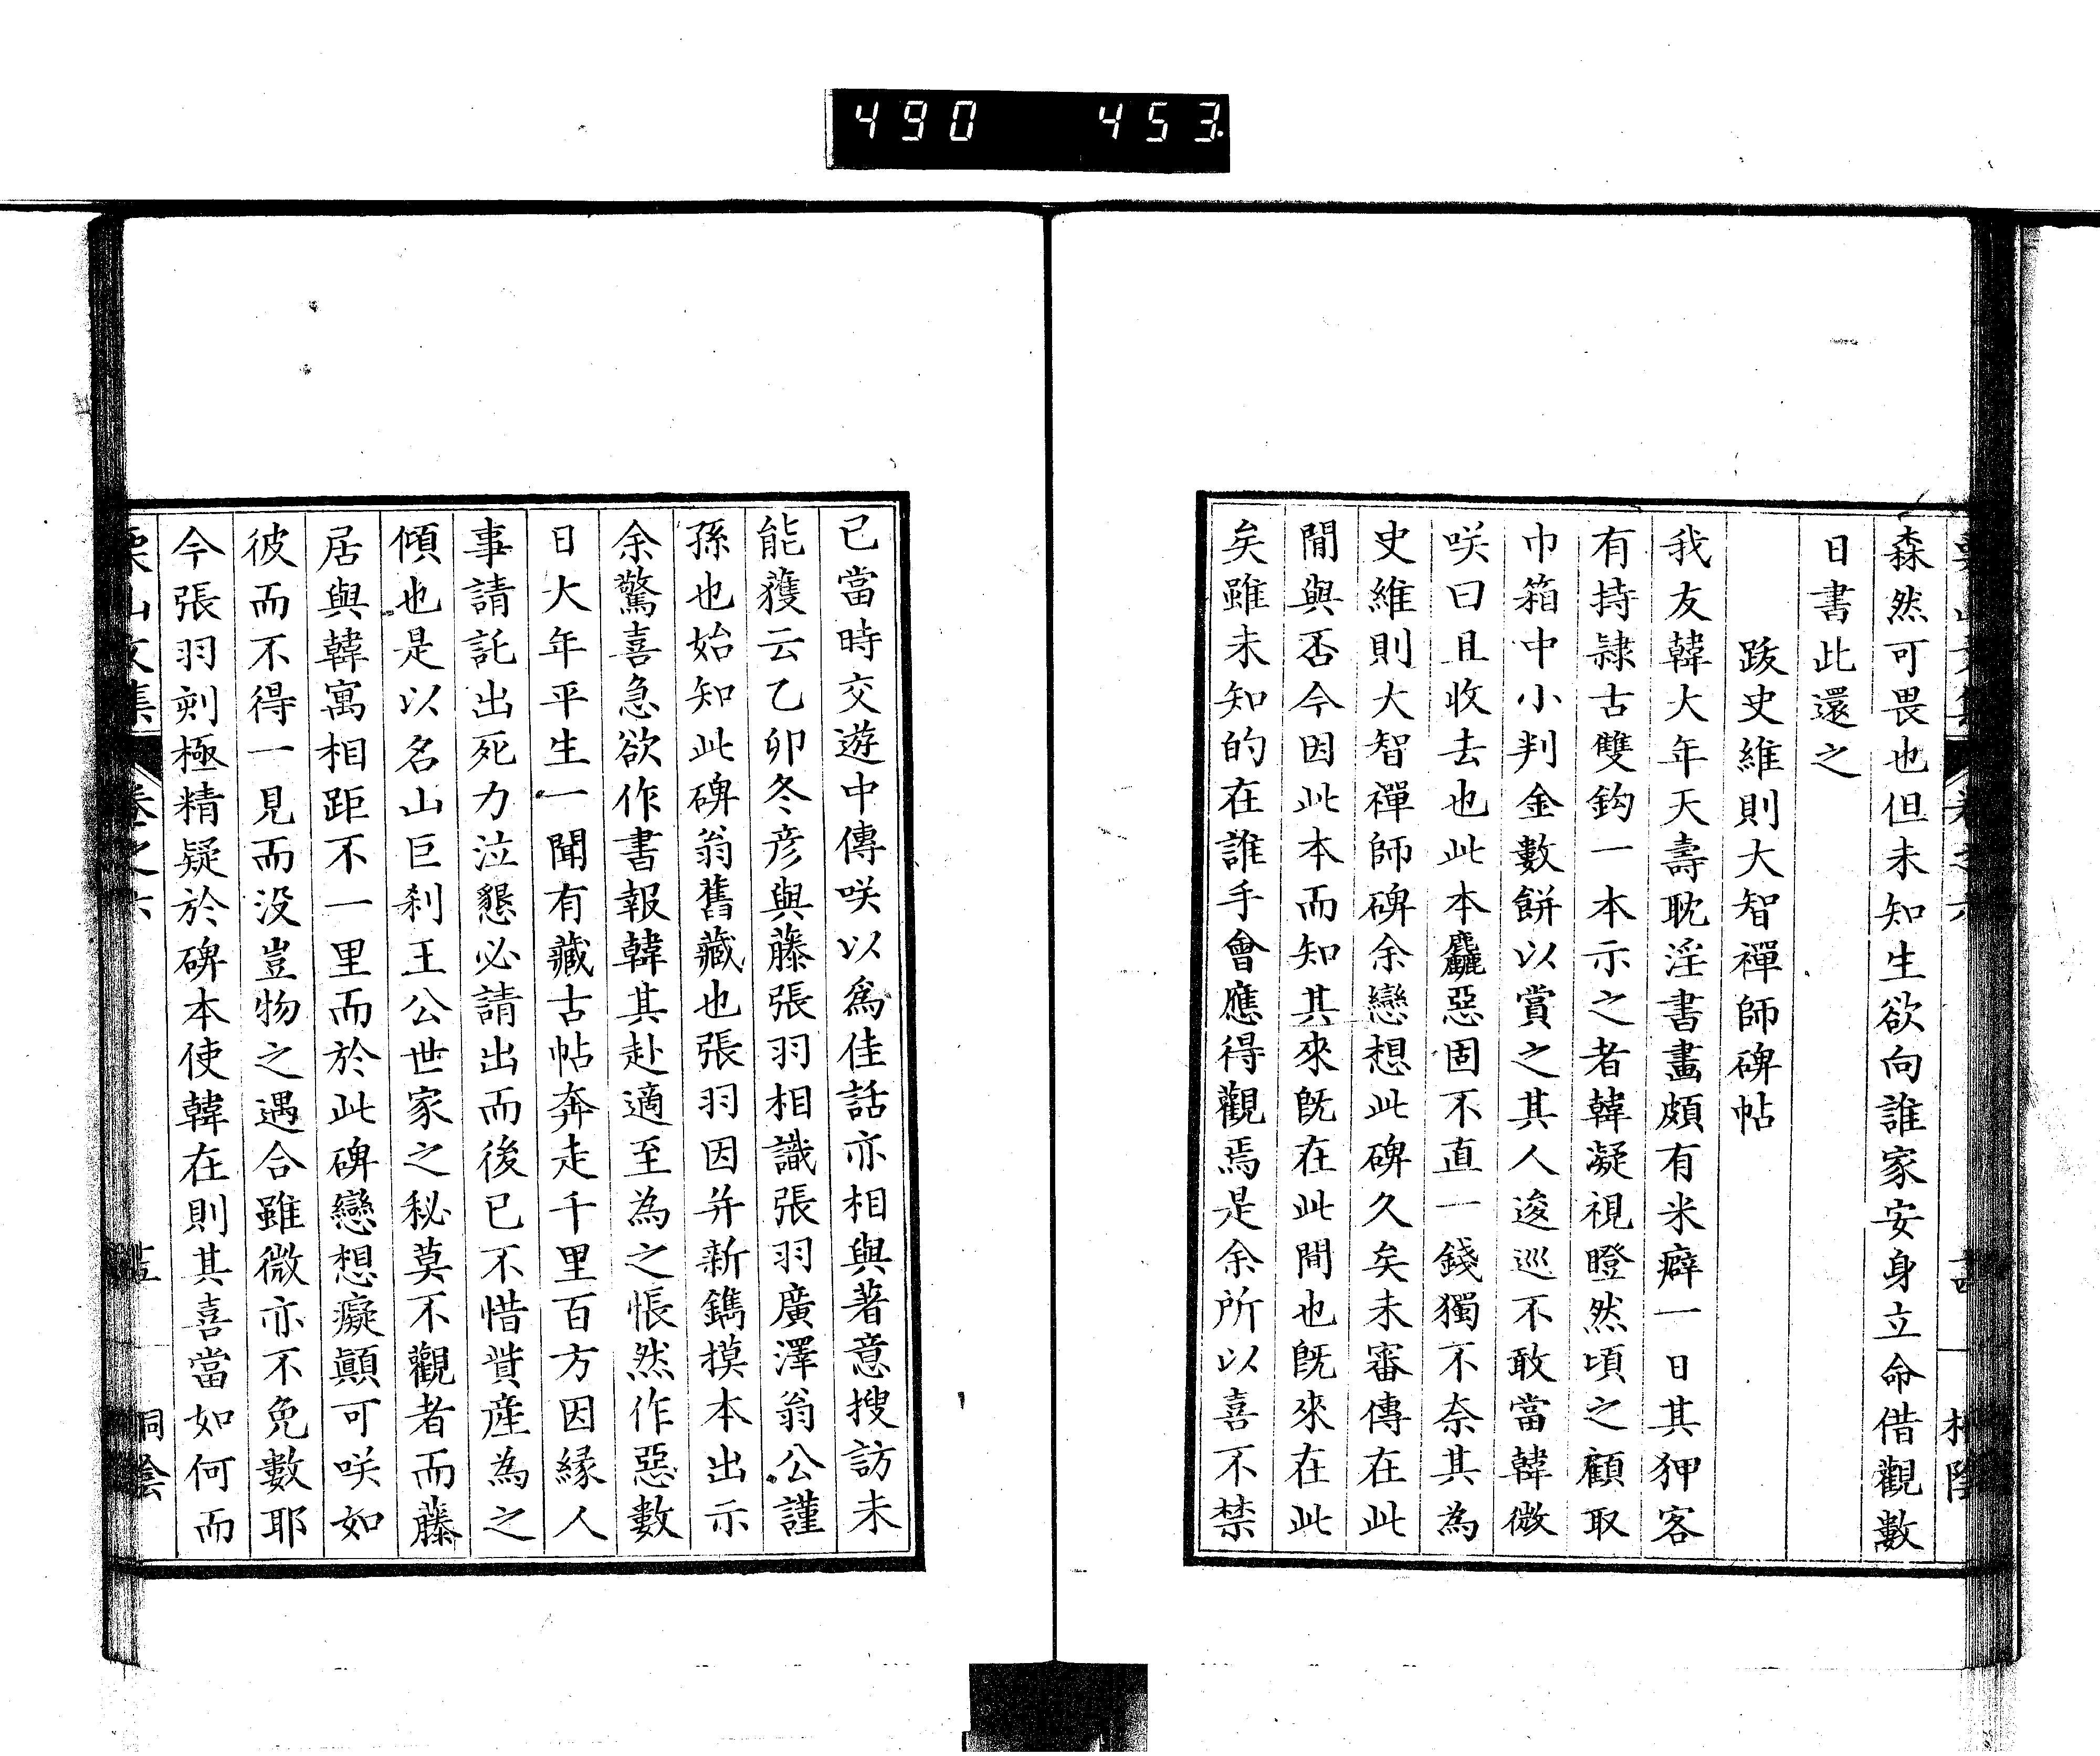 490 453
森然可畏也但未知生欲向誰家安身立命借觀數
日書此還之
跋史維則大智禪師碑帖
我友韓大年天壽耽淫書畫頗有米癖一日其狎客
有持隷古雙鈎一本示之者韓凝視瞪然頃之顧取
巾箱中小判金數餅以賞之其人逡巡不敢當韓微
咲曰且收去也此本麤惡固不直一錢獨不奈其為
史維則大智禪師碑余戀想此碑久矣未審傳在此
間與否今因此本而知其來既在此間也既來在此
矣雖未知的在誰手會應得觀焉是余所以喜不禁
已當時交遊中傳咲以爲佳話亦相與著意搜訪未
能獲云乙卯冬彦與藤張羽相識張羽廣澤翁公謹
孫也始知此碑翁舊藏也張羽因并新鐫摸本出示
余驚喜急欲作書報韓其赴適至為之悵然作惡數
日大年平生一聞有藏古帖奔走千里百方因縁人
事請託出死力泣懇必請出而後已不惜貲産為之
傾也是以名山巨刹王公世家之秘莫不觀者而藤
居與韓寓相距不一里而於此碑戀想癡顛可咲如
彼而不得一見而没豈物之遇合雖微亦不免數耶
今張羽剣極精疑於碑本使韓在則其喜當如何而
山文集 卷之六 桐陰